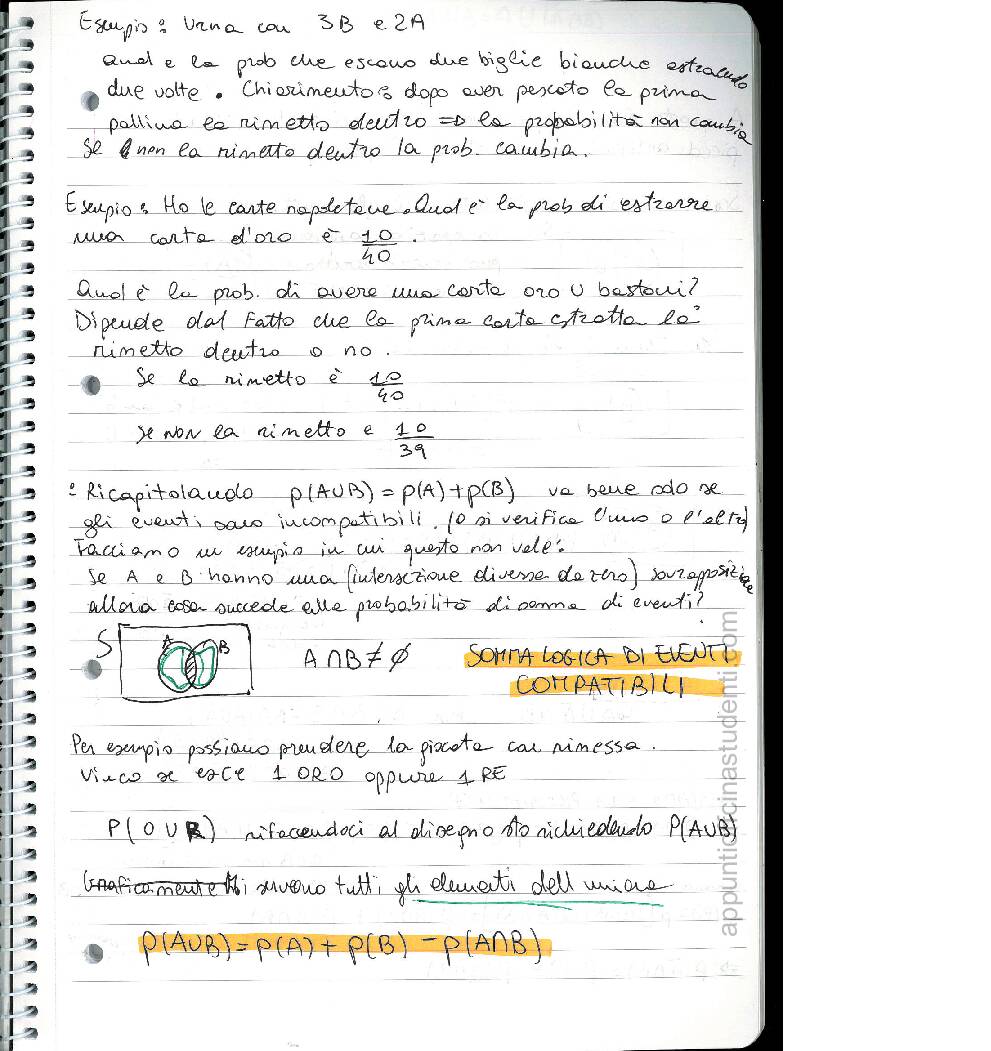 Esempio: Urna con 3B e 2A
Qual e la prob che escano due biglie bianche estraendo
due volte. Chiarimento: dopo aver pescato la prima
pallina la rimetto dentro => la propabilità non cambia
Se non la rimetto dentro la prob. cambia.
Esempio: Ho le carte napoletane. Qual è la prob di estrarre
una carta d'oro è 10/40.
Qual è la prob. di avere una carta oro U bastoni?
Dipende dal Fatto che la prima carta estratta la
rimetto dentro o no.
Se la rimetto è 10/40
Se NON la rimetto e 10/39
: Ricapitolando p(A∪B) = p(A)+p(B) va bene solo se
gli eventi sono incompatibili. (o si verifica l'uno o l'altro)
Facciamo un esempio in cui questo non vale:
Se A e B hanno una (intersezione diversa da zero) sovrapposizione
allora cosa succede alla probabilità di somma di eventi?
S A B A∩B ≠ ∅ SOMMA LOGICA DI EVENTI
COMPATIBILI
Per esempio possiamo prendere la giocata con rimessa.
Vinco se esce 1 ORO oppure 1 RE
P(O∪R) rifacendoci al disegno sto richiedendo P(A∪B)
Graficamente Mi servono tutti gli elementi dell'unione
p(A∪B) = p(A) + p(B) - p(A∩B)
appuntimedicinastudenti.com